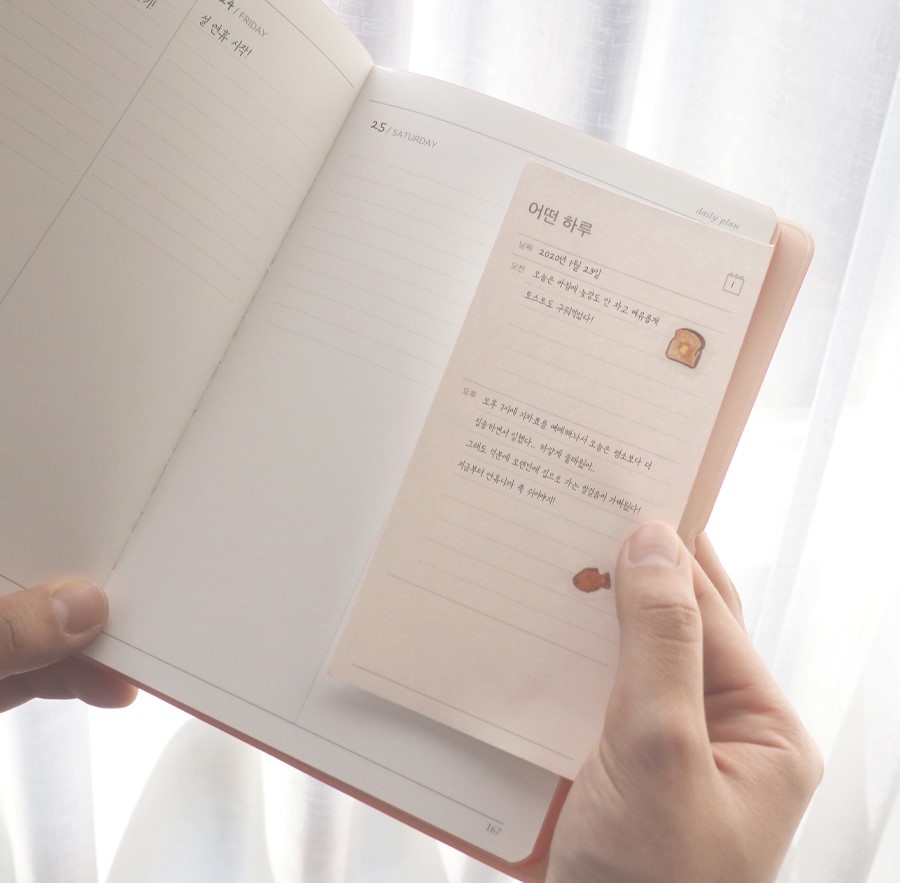 24 / FRIDAY
설 연휴 시작!
25 / SATURDAY
daily plan
어떤 하루
날짜 2020년 1월 23일
1
오전 오늘은 아침에 늦잠도 안 자고 여유롭게
토스트도 구워먹었다!
오후 오후 7시에 기차표를 예매해놔서 오늘은 평소보다 더
집중하면서 일했다.. 하얗게 불태웠어..
그래도 덕분에 오랜만에 집으로 가는 발걸음이 가벼웠다!
지금부터 연휴니까 푹 쉬어야지!
167